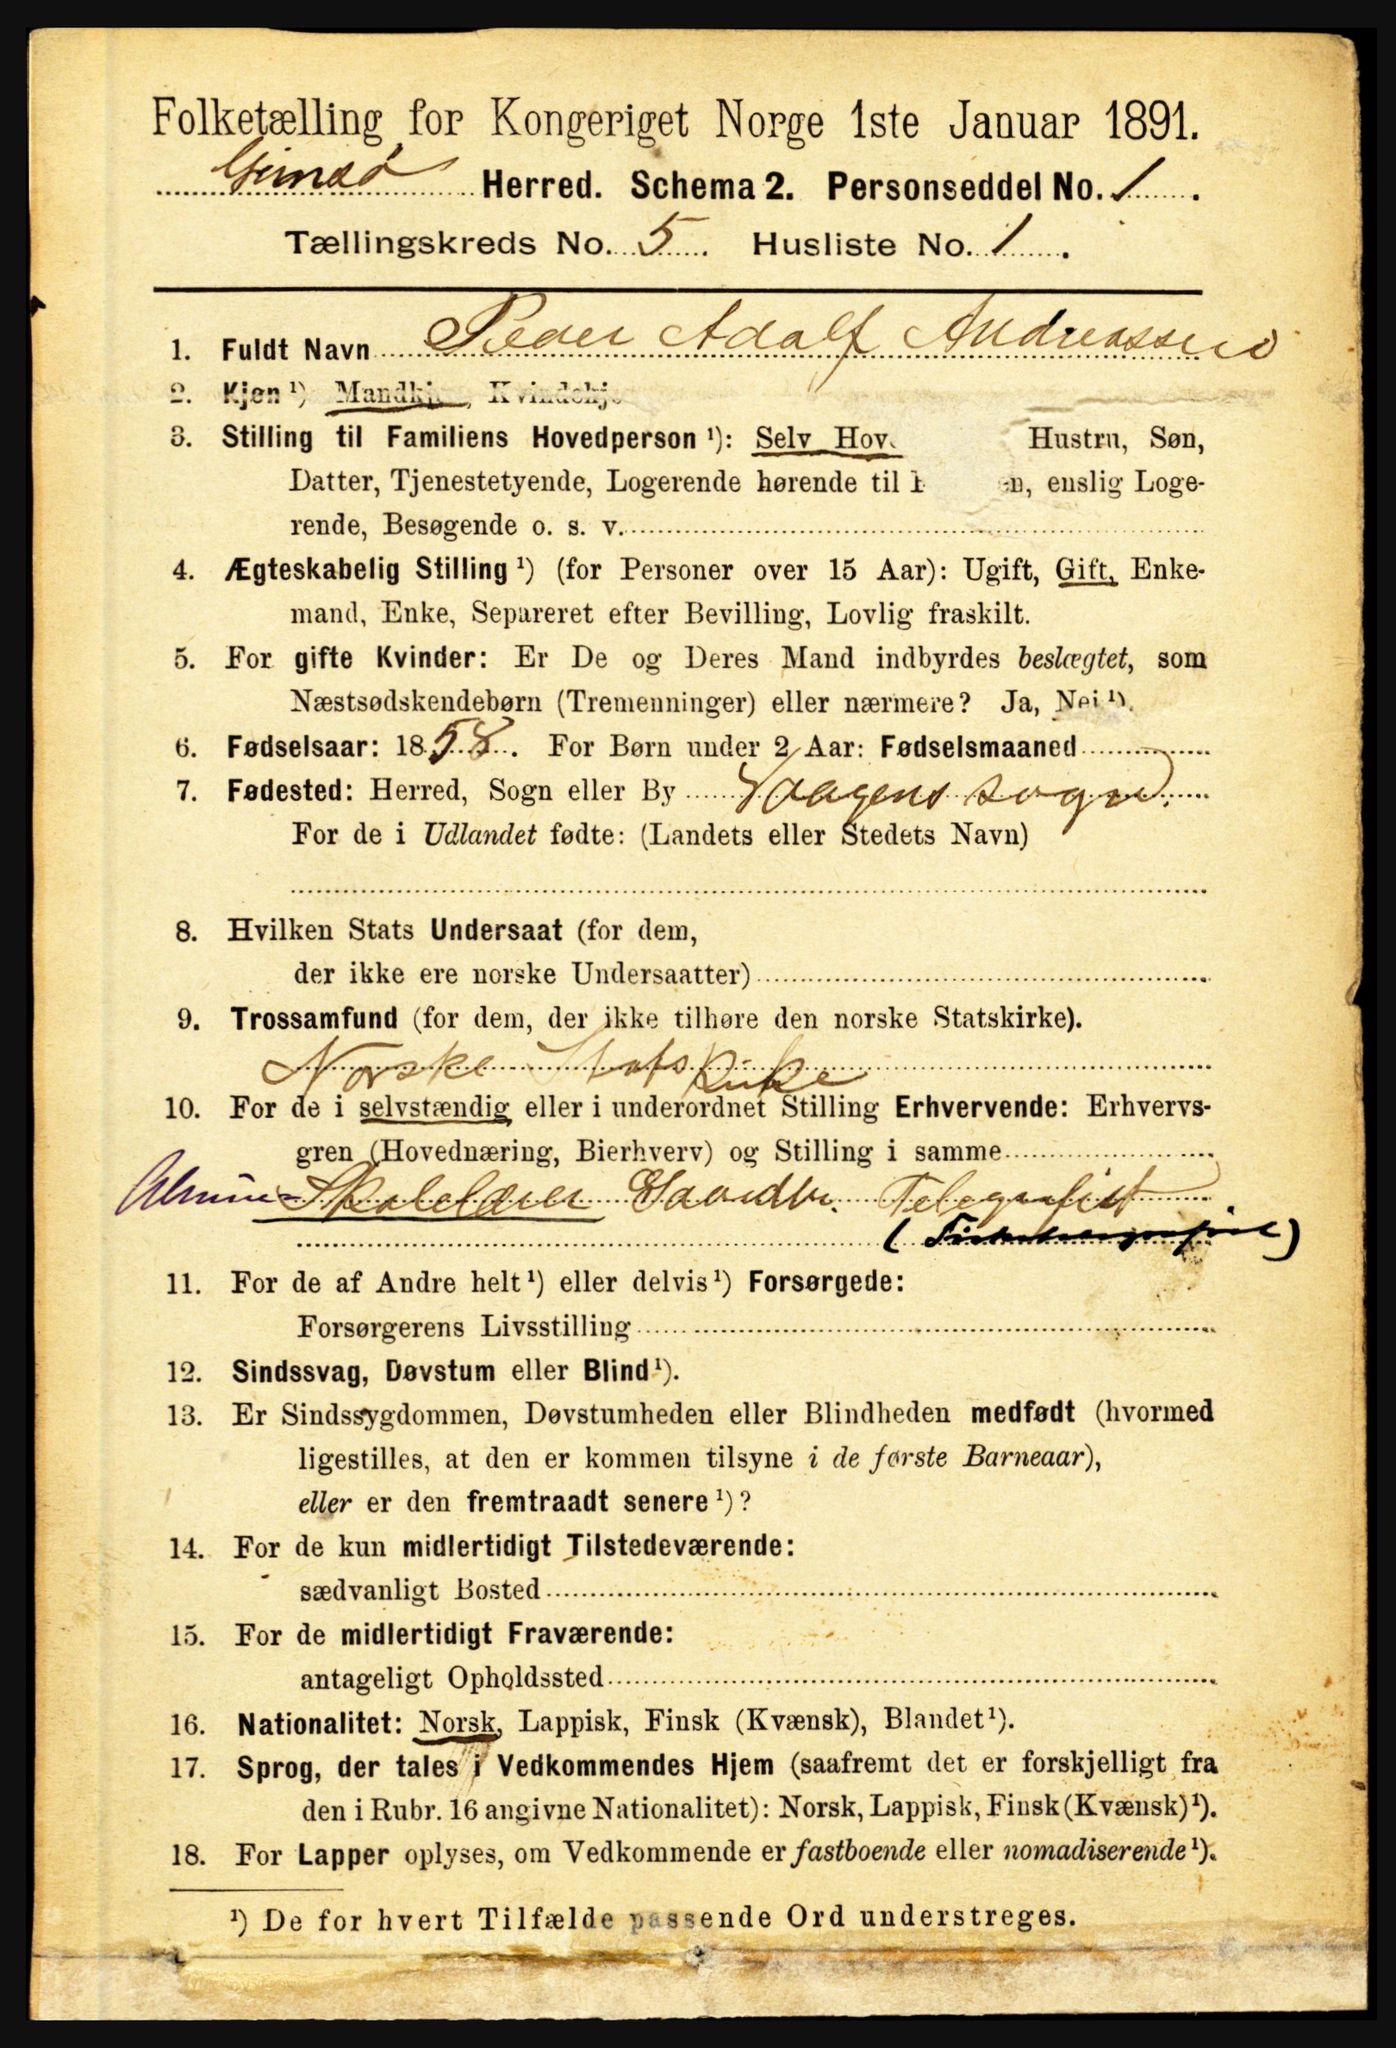 Folketælling for Kongeriget Norge 1ste Januar 1891.
Gimsø Herred. Schema 2. Personseddel No. 1.
Tællingskreds No. 5. Husliste No. 1.
1. Fuldt Navn Peder Adolf Andreassen
2. Kjøn ¹) Mandkj, Kvindekj
3. Stilling til Familiens Hovedperson ¹): Selv Hov Hustru, Søn,
Datter, Tjenestetyende, Logerende hørende til en, enslig Loge-
rende, Besøgende o. s. v.
4. Ægteskabelig Stilling ¹) (for Personer over 15 Aar): Ugift, Gift, Enke-
mand, Enke, Separeret efter Bevilling, Lovlig fraskilt.
5. For gifte Kvinder: Er De og Deres Mand indbyrdes beslægtet, som
Næstsødskendebørn (Tremenninger) eller nærmere? Ja, Nei ¹).
6. Fødselsaar: 1858. For Børn under 2 Aar: Fødselsmaaned
7. Fødested: Herred, Sogn eller By Vaagens sogn.
For de i Udlandet fødte: (Landets eller Stedets Navn)
8. Hvilken Stats Undersaat (for dem,
der ikke ere norske Undersaatter)
9. Trossamfund (for dem, der ikke tilhøre den norske Statskirke).
Norske Stats Kirke
10. For de i selvstændig eller i underordnet Stilling Erhvervende: Erhvervs-
gren (Hovednæring, Bierhverv) og Stilling i samme
Skolelærer Gaardbr. Telegrafist
11. For de af Andre helt ¹) eller delvis ¹) Forsørgede:
Forsørgerens Livsstilling
12. Sindssvag, Døvstum eller Blind ¹).
13. Er Sindssygdommen, Døvstumheden eller Blindheden medfødt (hvormed
ligestilles, at den er kommen tilsyne i de første Barneaar),
eller er den fremtraadt senere ¹)?
14. For de kun midlertidigt Tilstedeværende:
sædvanligt Bosted
15. For de midlertidigt Fraværende:
antageligt Opholdssted
16. Nationalitet: Norsk, Lappisk, Finsk (Kvænsk), Blandet ¹).
17. Sprog, der tales i Vedkommendes Hjem (saafremt det er forskjelligt fra
den i Rubr. 16 angivne Nationalitet): Norsk, Lappisk, Finsk (Kvænsk) ¹).
18. For Lapper oplyses, om Vedkommende er fastboende eller nomadiserende ¹).
¹) De for hvert Tilfælde passende Ord understreges.